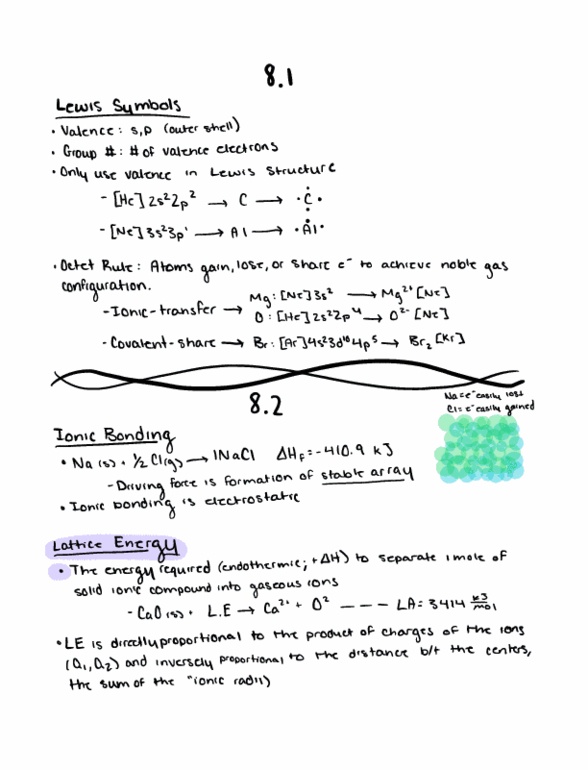 8.1
Lewis Symbols
• Valence: s,p (outer shell)
• Group #: # of valence electrons
• Only use valence in Lewis structure
- [He] 2s²2p² → C → ·C·
- [Ne] 3s²3p¹ → Al → ·Al·
• Octet Rule: Atoms gain, lose, or share e⁻ to achieve noble gas
configuration.
- Ionic-transfer → Mg: [Ne]3s² → Mg²⁺ [Ne]
O: [He]2s²2p⁴ → O²⁻ [Ne]
- Covalent-share → Br: [Ar]4s²3d¹⁰4p⁵ → Br₂ [Kr]
8.2
Na = e⁻ easily lost
Cl = e⁻ easily gained
Ionic Bonding
• Na(s) + ½ Cl(g) → 1NaCl ΔHf = -410.9 kJ
- Driving force is formation of stable array
• Ionic bonding is electrostatic
Lattice Energy
• The energy required (endothermic; +ΔH) to separate 1 mole of
solid ionic compound into gaseous ions
- CaO(s) + L.E → Ca²⁺ + O² --- LA = 3414 kJ/mol
• LE is directly proportional to the product of charges of the ions
(Q₁, Q₂) and inversely proportional to the distance b/t the centers,
the sum of the "ionic radii)